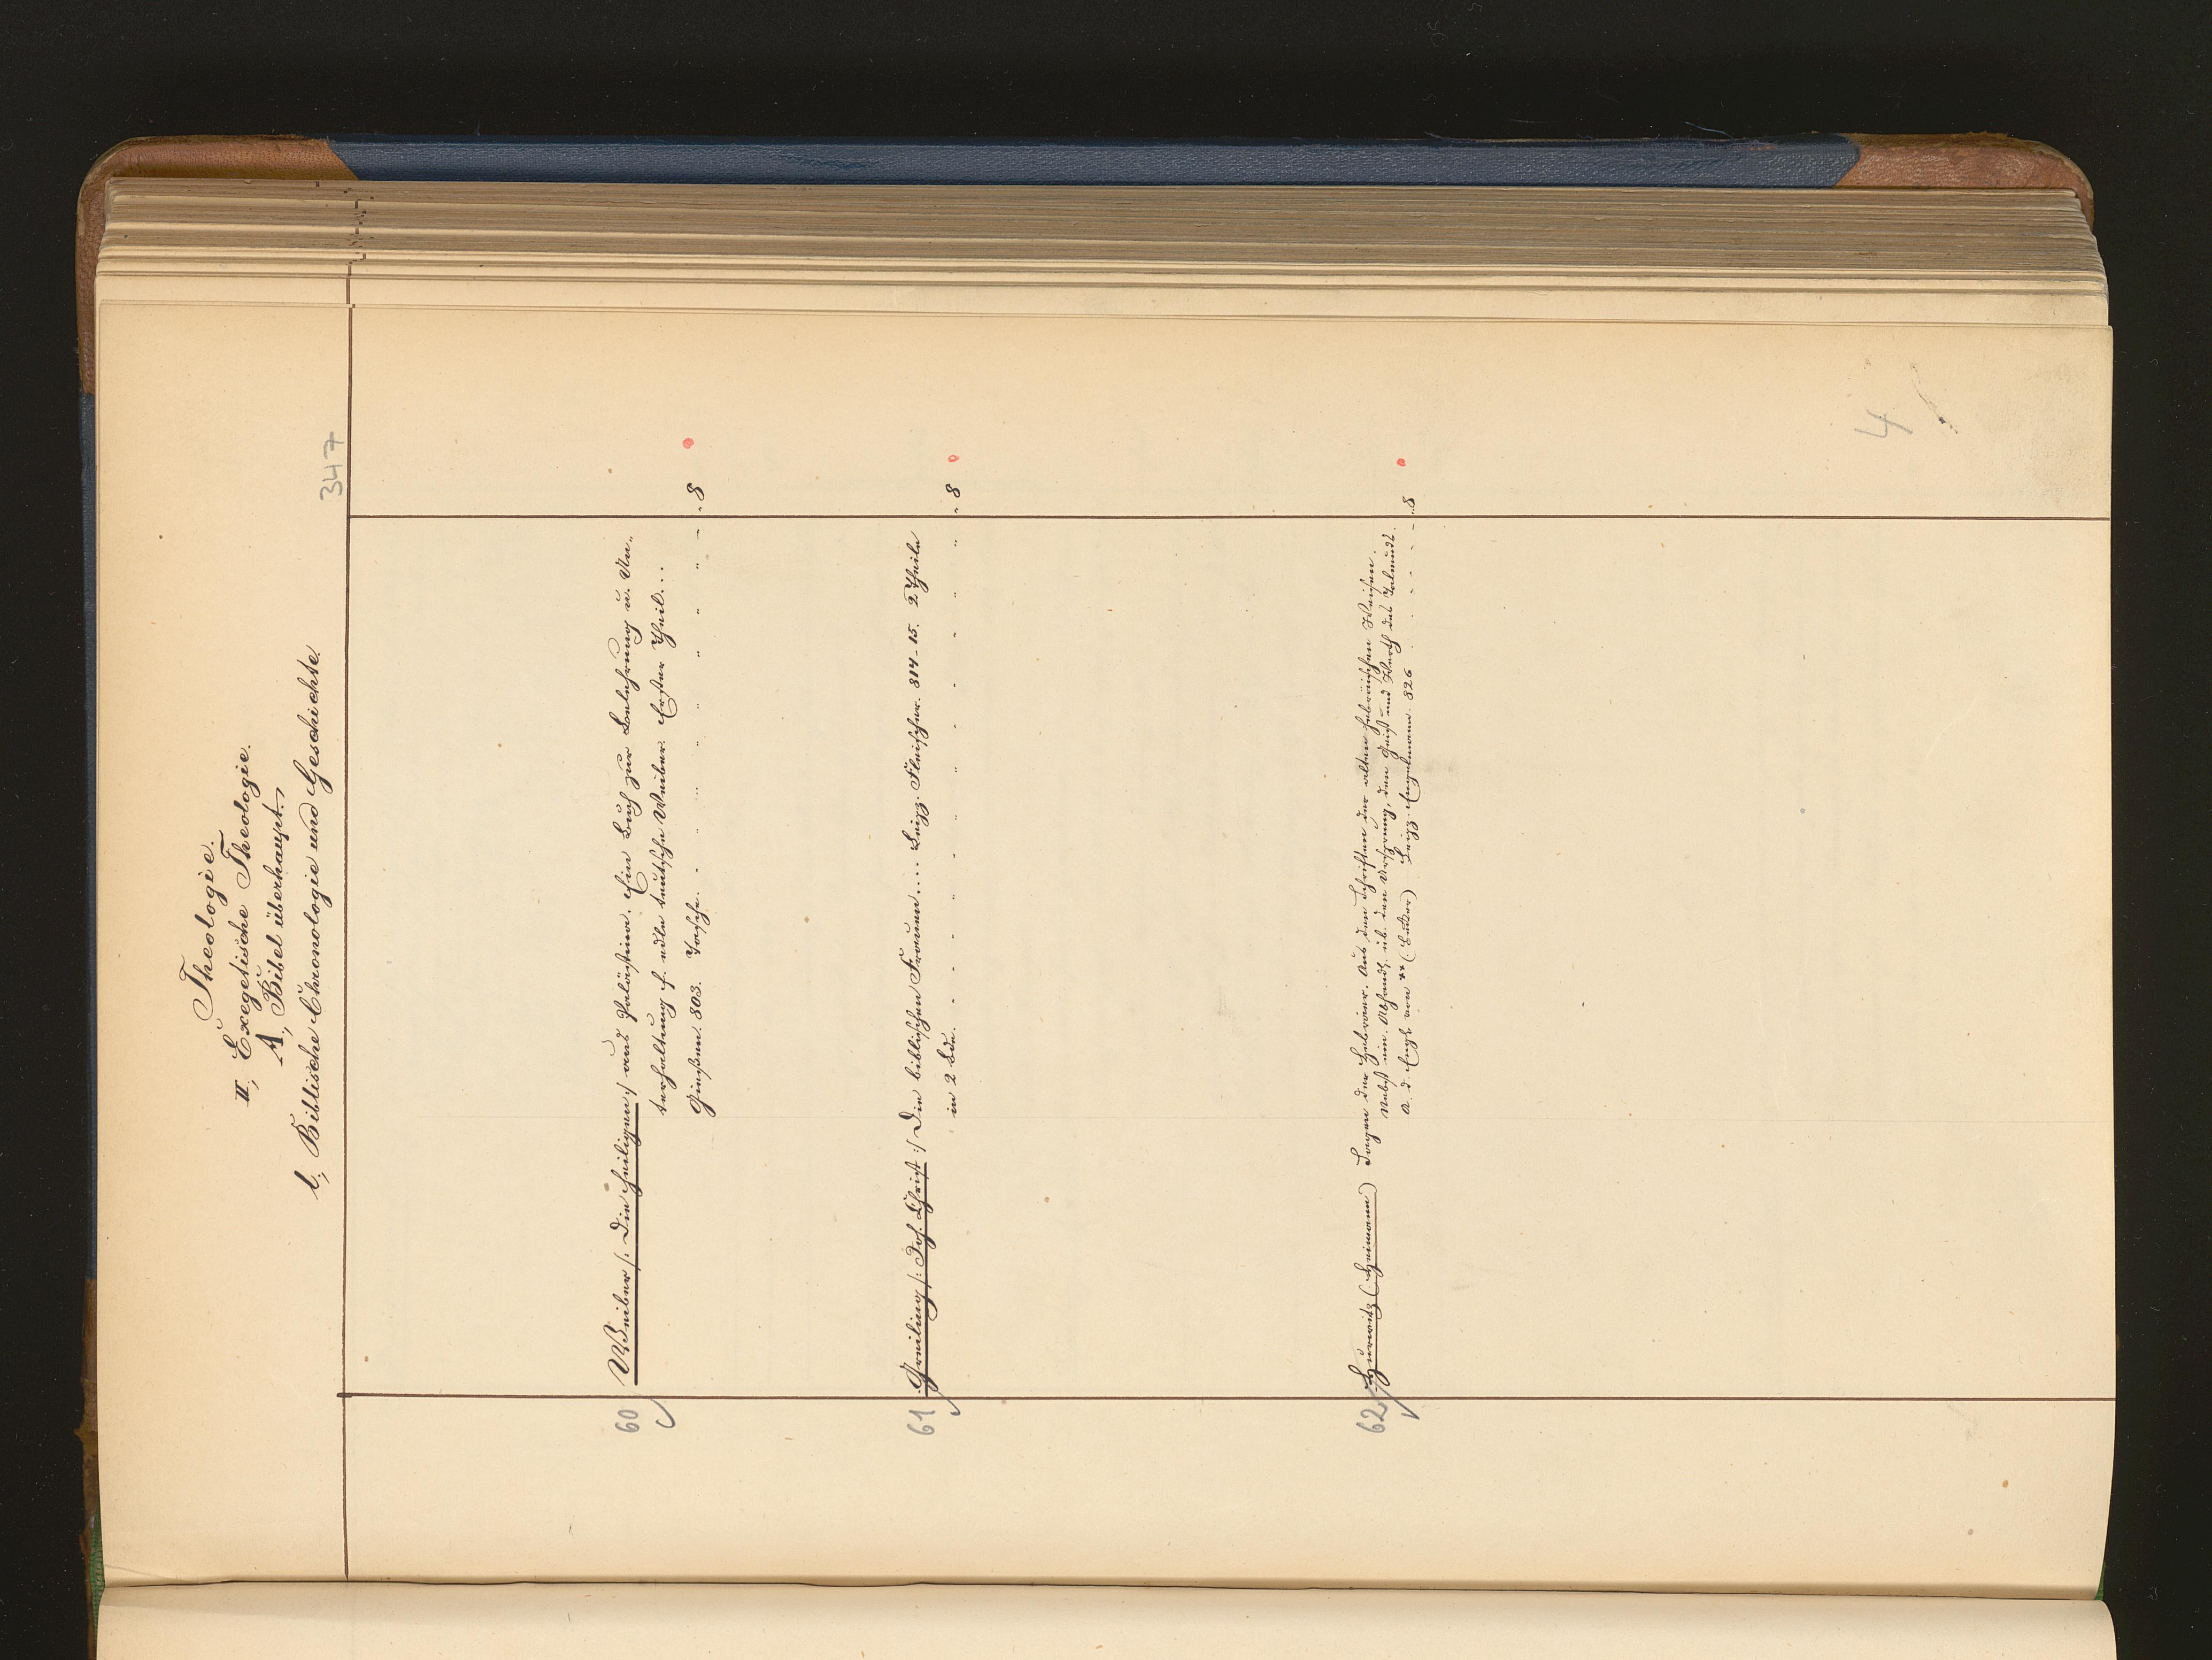 Theologie.
II., Exegetische Theologie.
A., Bibel überhaupt.
l., Biblische Chronologie und Geschichte.
347
60 Weiber /: Die heiligen :/ aus Palästina. Ein Buch zur Belehrung u. Un-
terhaltung f. edle teutsche Weiber. Erster Theil...
Gießen. 803. Tasche. - - " " " " " " - " 8
61 Greiling /: Joh. Christ :/ Die biblischen Frauen.... Leipz. Fleischer. 814-15. 2 Theile
in 2 Bde. - - - " - " " - - - " " " 8
62 Hurwitz (Heimann) Sagen der Hebräer. Aus den Schriften der alten hebräischen Weisen.
Nebst ein. Abhandl. üb. den Ursprung, den Geist und Werth des Talmuds.
A. d. Engl. von ** Leipz. Engelmann. 826 . - - - - " 8
4